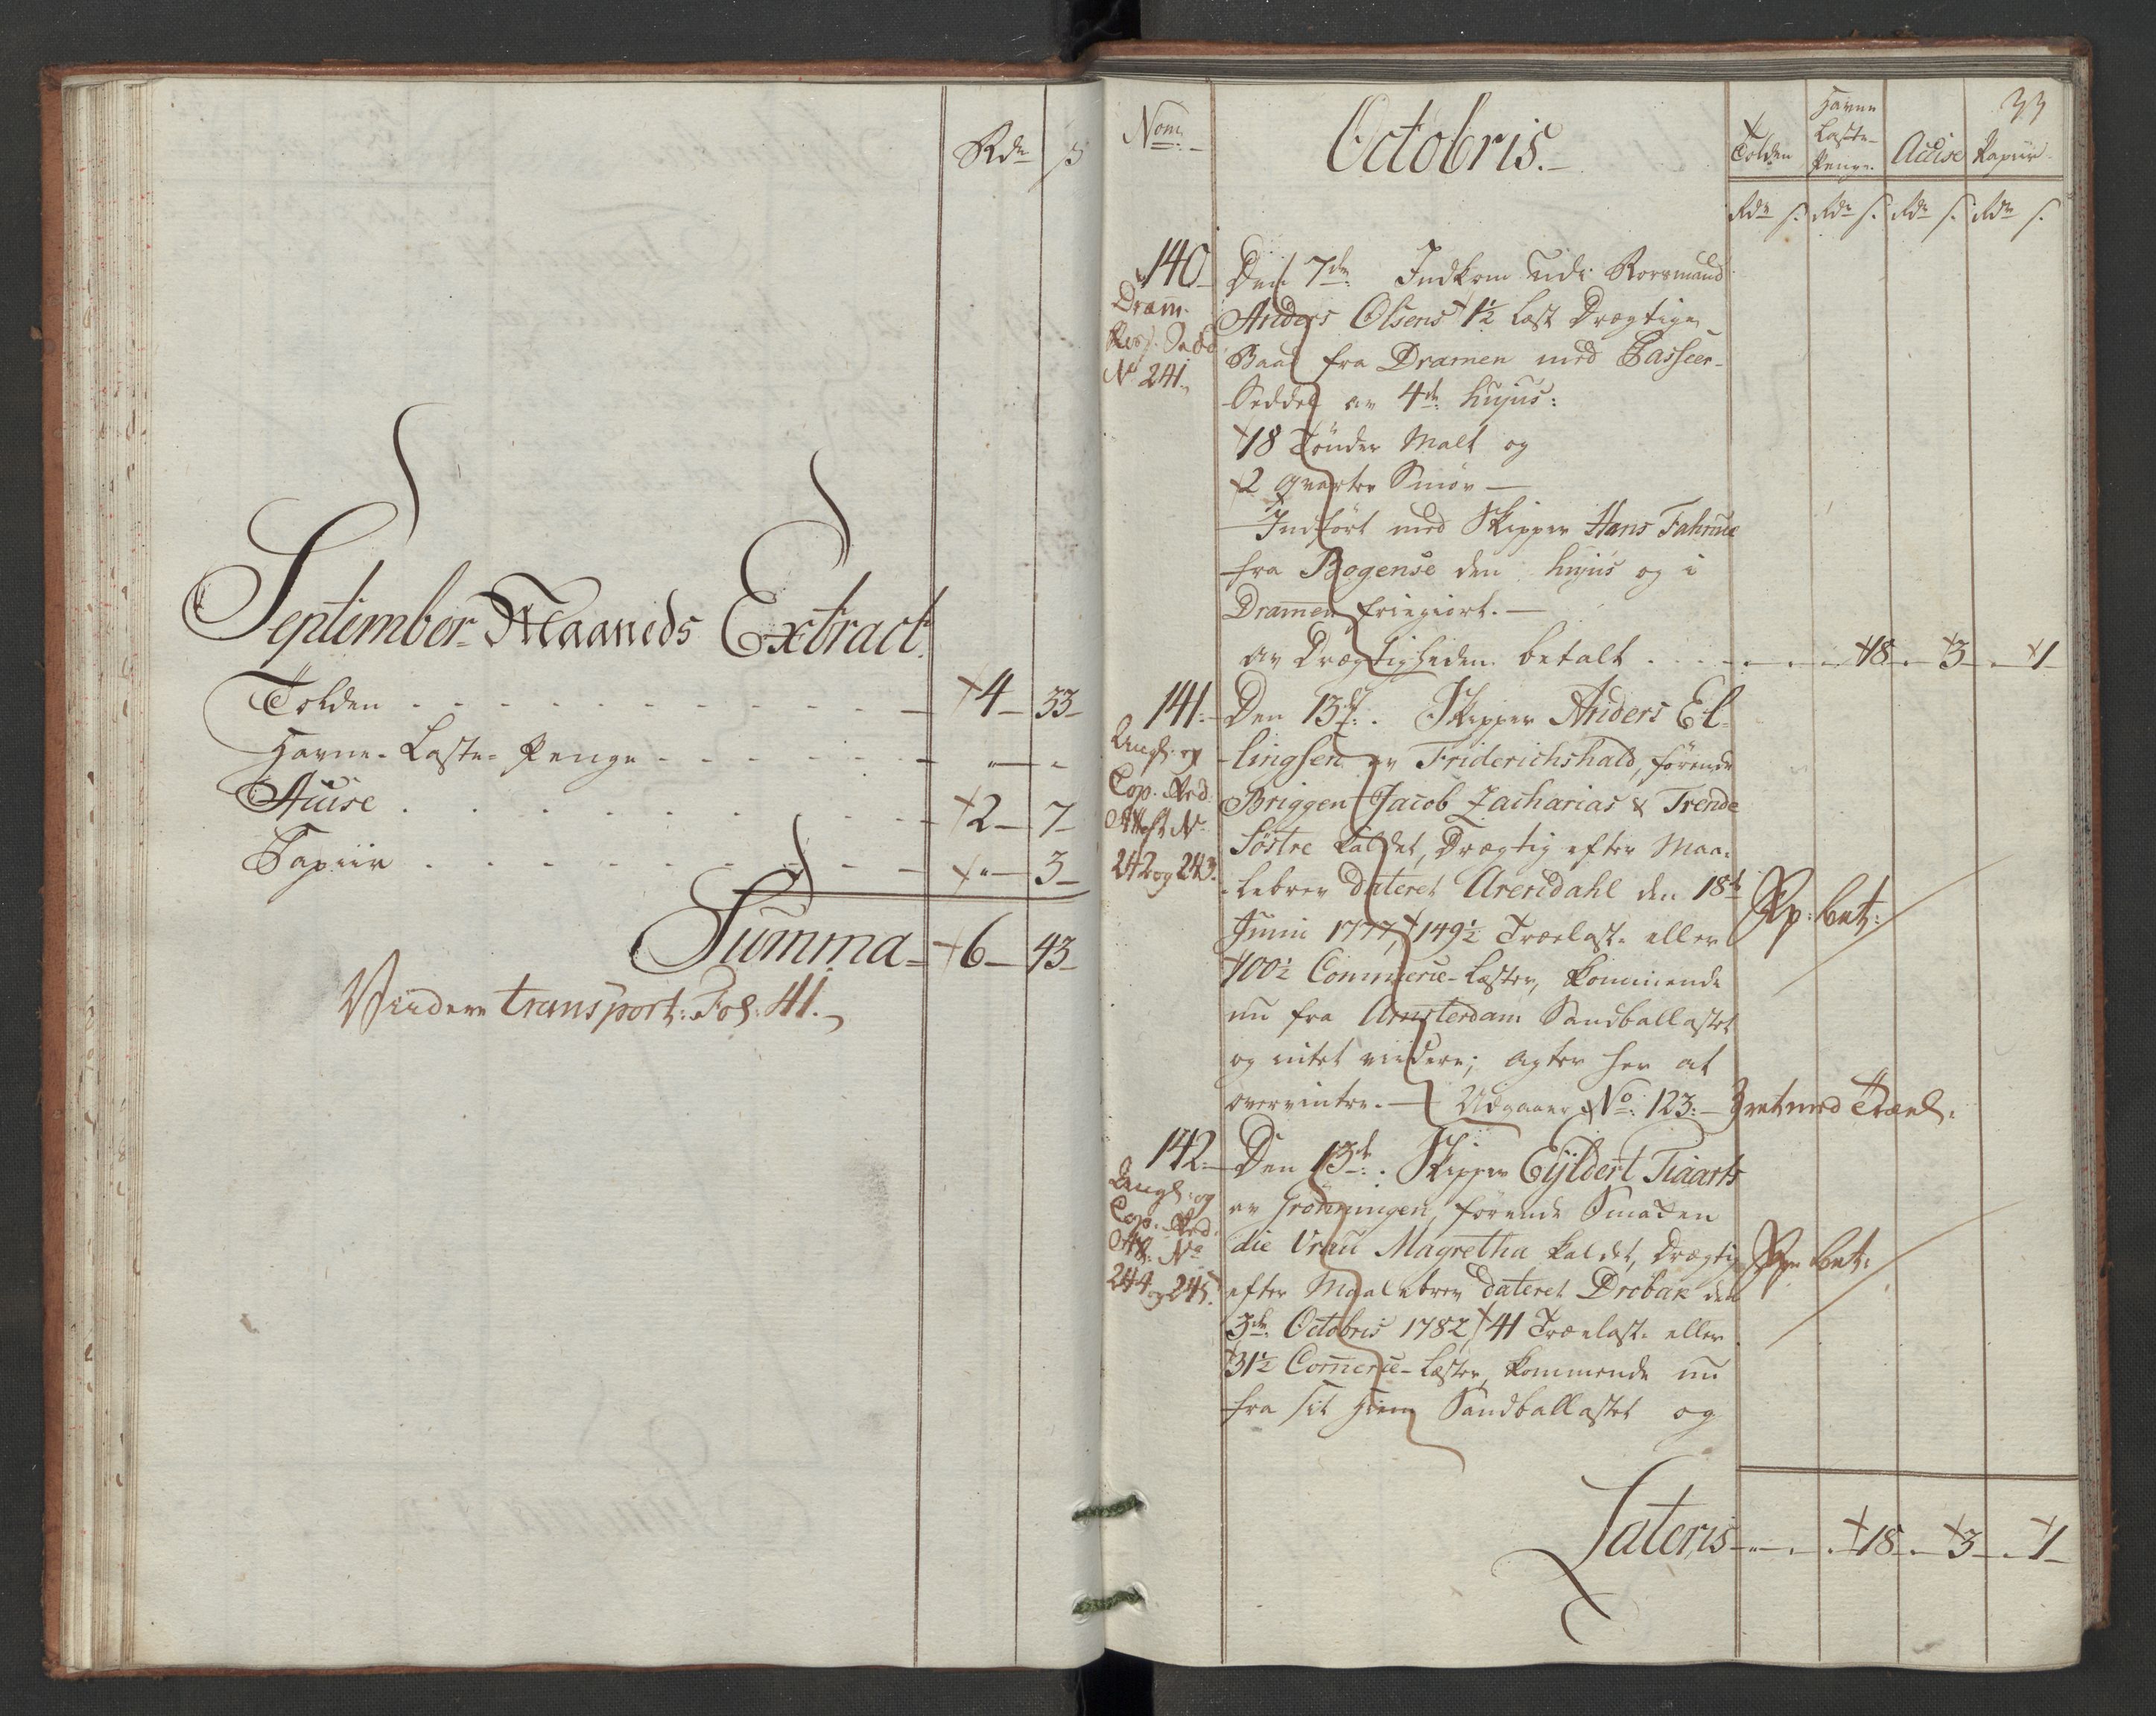 Rdr ß
September Maaneds Extract.
Tolden - - - - 4 - 33 -
Havne-Laste-Penge - - - - " - "
Accise - - - - 2 - 7 -
Papiir - - - - " - 3 -
Summa - 6 - 43 -
Viidere transport: Fol: 41.
Nom:
Octobris.
Tolden
Havne
Laste-
Penge.
Accise
Papiir.
33
Rdr s. Rdr s. Rdr s. Rdr s.
140
Dram.
No 241.
Den 7de Indkom udi Rorsmand
Anders Olsens 1½ Læst Drægtige
Baad fra Dramen med Passeer-
Seddel av 4de hujus:
18 Tönder Malt og
2 qvarter Smör —
Indfört med Skipper Hans Fahnüe
fra Bogense den hujus og i
Dramen friegiort. —
av Drægtigheden betalt . . . . 18 . 3 . 1
141.
Engl. og
Cop. Red.
Attest No
242 og 243.
Den 13de. Skipper Anders El-
lingsen av Friderichshald, förende
Briggen Jacob Zacharias & Trende
Söstre kaldet, Drægtig efter Maa-
lebrev dateret Arendahl den 18de
Junii 1777, 149½ Trælast. eller
100½ Commerce-Læster, kommende
nu fra Amsterdam Sandballastet
og intet viidere; agter her at
overvintre. — Udgaaer No: 123.
Sp: bet:
142.
Engl. og
Cop. Red.
Att. No
244 og 245.
Den 13de. Skipper Eyldert Tiaarts
av Gronningen, förende Smakken
die Vrau Magretha kaldet, Drægtig
efter Maalebrev dateret Drobak den
3de Octobris 1782, 41 Trælast. eller
31½ Commerce-Læster, kommende nu
fra sit Hiem Sandballastet og
Sp: bet:
Lateris - - . 18 . 3 . 1